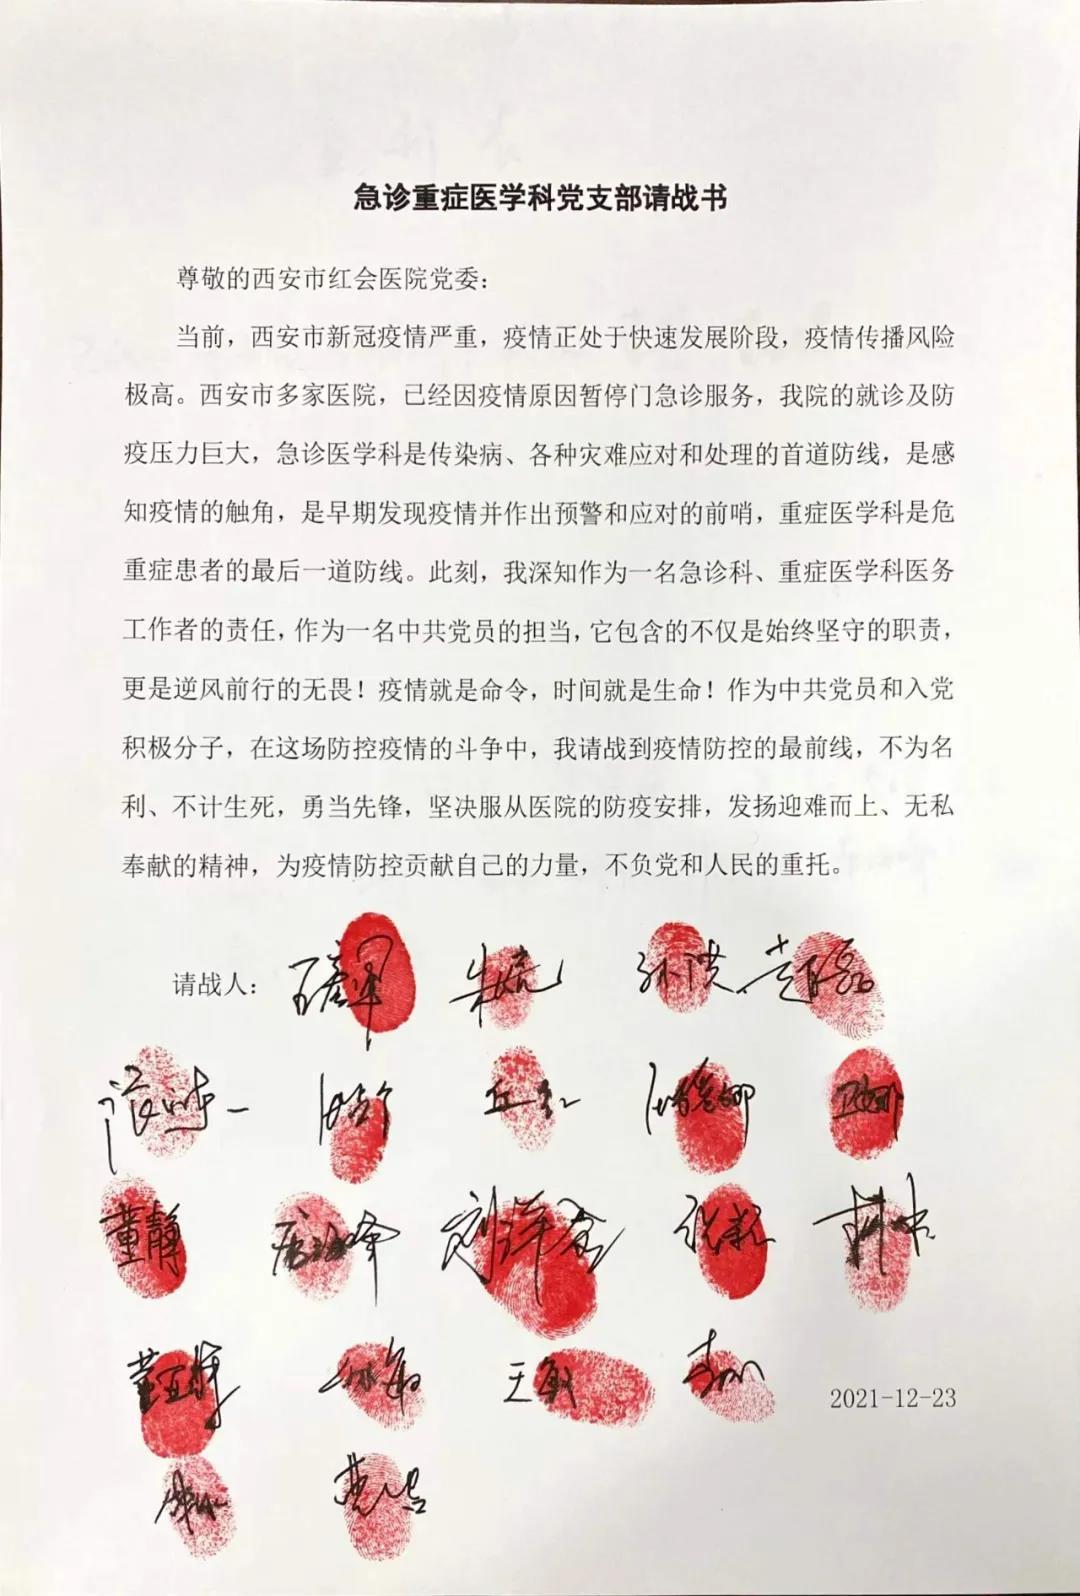 急诊重症医学科党支部请战书
尊敬的西安市红会医院党委：
当前，西安市新冠疫情严重，疫情正处于快速发展阶段，疫情传播风险
极高。西安市多家医院，已经因疫情原因暂停门急诊服务，我院的就诊及防
疫压力巨大，急诊医学科是传染病、各种灾难应对和处理的首道防线，是感
知疫情的触角，是早期发现疫情并作出预警和应对的前哨，重症医学科是危
重症患者的最后一道防线。此刻，我深知作为一名急诊科、重症医学科医务
工作者的责任，作为一名中共党员的担当，它包含的不仅是始终坚守的职责，
更是逆风前行的无畏！疫情就是命令，时间就是生命！作为中共党员和入党
积极分子，在这场防控疫情的斗争中，我请战到疫情防控的最前线，不为名
利、不计生死，勇当先锋，坚决服从医院的防疫安排，发扬迎难而上、无私
奉献的精神，为疫情防控贡献自己的力量，不负党和人民的重托。
请战人：
董静
王敏
2021-12-23